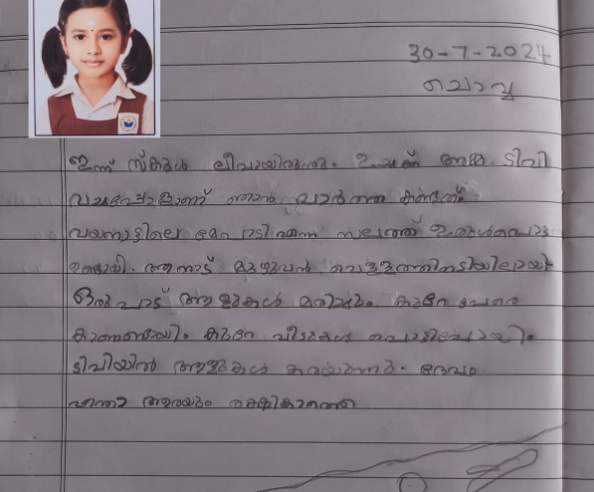 30-7-2024
ചൊവ്വ
ഇന്ന് സ്കൂൾ ലീവായിരുന്നു. ഉച്ചക്ക് അമ്മ ടിവി
വച്ചപ്പോളാണ് ഞാൻ വാർത്ത കണ്ടത്.
വയനാട്ടിലെ മേപാടി എന്ന സലത്ത് ഉരുൾപൊട്ട
ഉണ്ടായി. ആ നാട് മുഴുവൻ വെള്ളത്തിനടിയിലായി
ഒരുപാട് ആളുകൾ മരിച്ചു. കുറേ പേരെ
കാണണ്ടായി. കുറേ വീടുകൾ പൊട്ടിപോയി.
ടിവിയിൽ ആളുകൾ കരയുന്നു. ദൈവം
എന്താ ആരെയും രക്ഷികാത്തെ